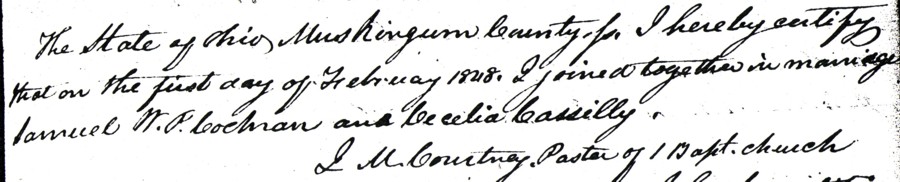 The State of Ohio, Muskingum County, ss. I hereby certify
that on the first day of February 1848. I joined together in marriage
Samuel W. P. Cochran and Cecelia Cassilly.
J M. Courtney. Pastor of 1 Bapt. church